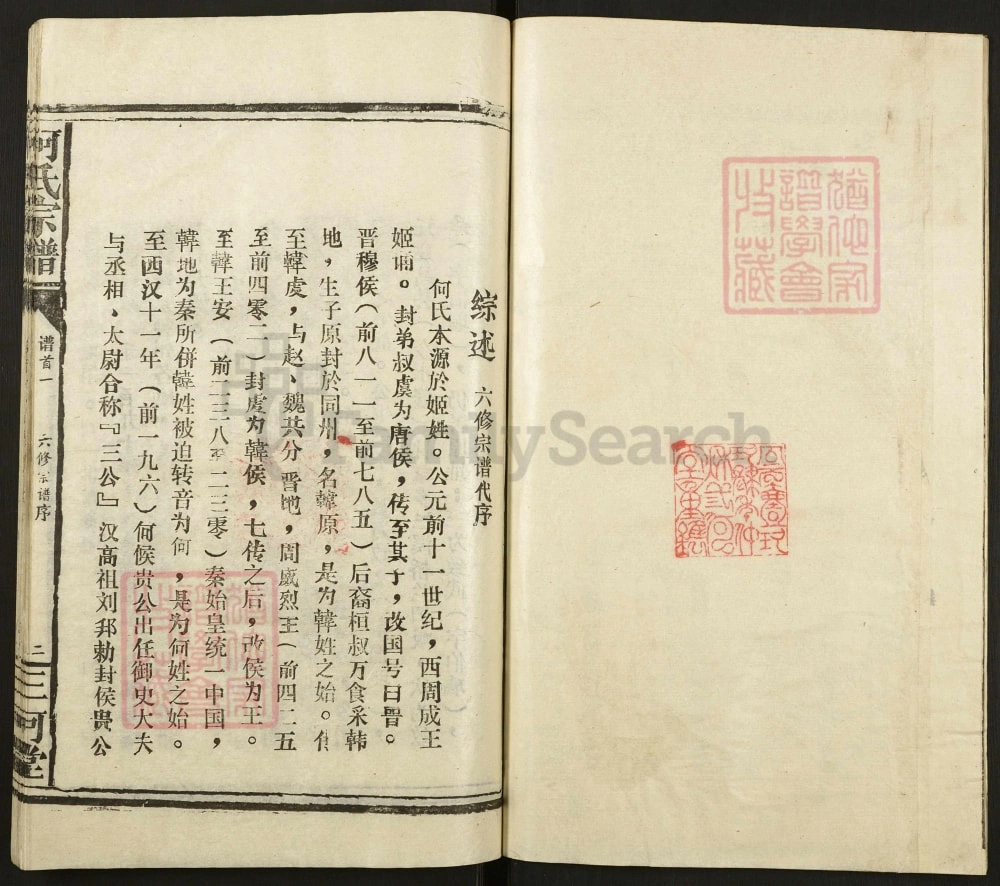 综述 六修宗谱代序
何氏本源於姬姓。公元前十一世纪，西周成王
姬诵。封弟叔虞为唐侯，传至其子，改国号曰晋。
晋穆侯（前八一一至前七八五）后裔桓叔万食采韩
地，生子原封於同州，名韓原，是为韓姓之始。传
至韓虔，与赵、魏共分晋地，周威烈王（前四二五
至前四零二）封虔为韓侯，七传之后，改侯为王。
至韓王安（前二三八至二三零）秦始皇统一中国，
韓地为秦所併韓姓被迫转音为何，是为何姓之始。
至西汉十一年（前一九六）何候贵公出任御史大夫
与丞相、太尉合称『三公』汉高祖刘邦勅封侯贵公
何氏宗譜
谱首一
六修宗谱序
二
三何堂
猶他家
譜學會
收藏
FamilySearch